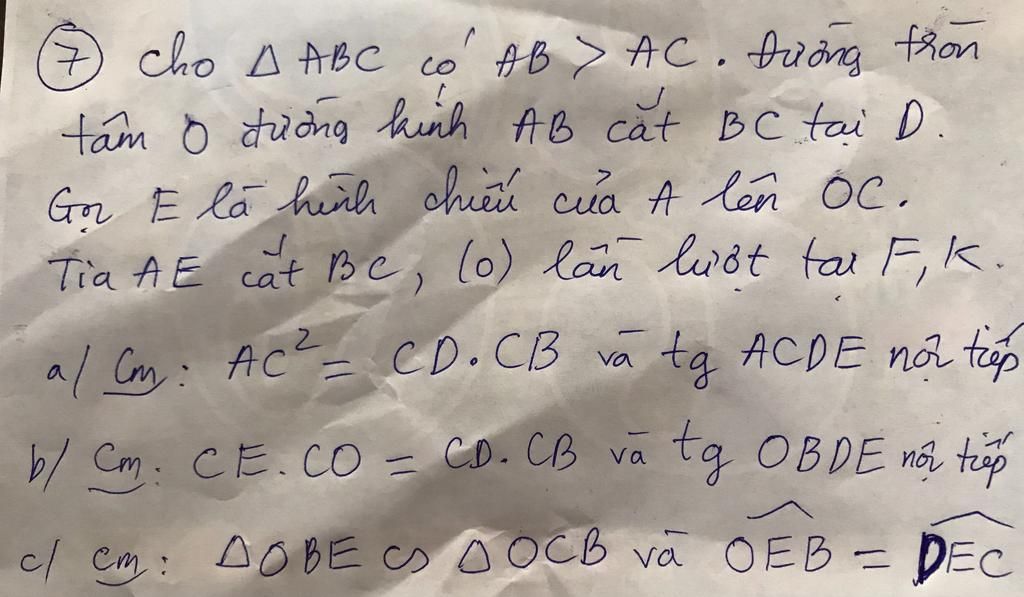 7 Cho △ ABC có AB > AC. Đường tròn
tâm O đường kính AB cắt BC tại D.
Gọi E là hình chiếu của A lên OC.
Tia AE cắt BC, (O) lần lượt tại F, K.
a/ Cm: AC² = CD.CB và tg ACDE nội tiếp
b/ Cm: CE.CO = CD.CB và tg OBDE nội tiếp
c/ Cm: △OBE ∽ △OCB và \widehat{OEB} = \widehat{DEC}